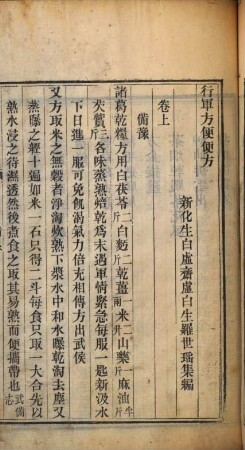 行軍方便便方
新化生白虛齋盧白生羅世瑶集編
卷上
備豫
諸葛乾糧方用白茯苓二斤白麪二斤乾薑一兩米二升山藥一斤麻油半斤
芡實三斤各味蒸熟焙乾為末遇軍情緊急每服一匙新汲水
下日進一服可免飢渴氣力倍充相傳方出武侯
又方取米之無穀者淨淘炊熟下漿水中和水曝乾淘去塵又
蒸曝之經十遍如米一石只得二斗每食只取一大合先以
熟水浸之待濕透然後煮食之取其易熟而便攜帶也武備志